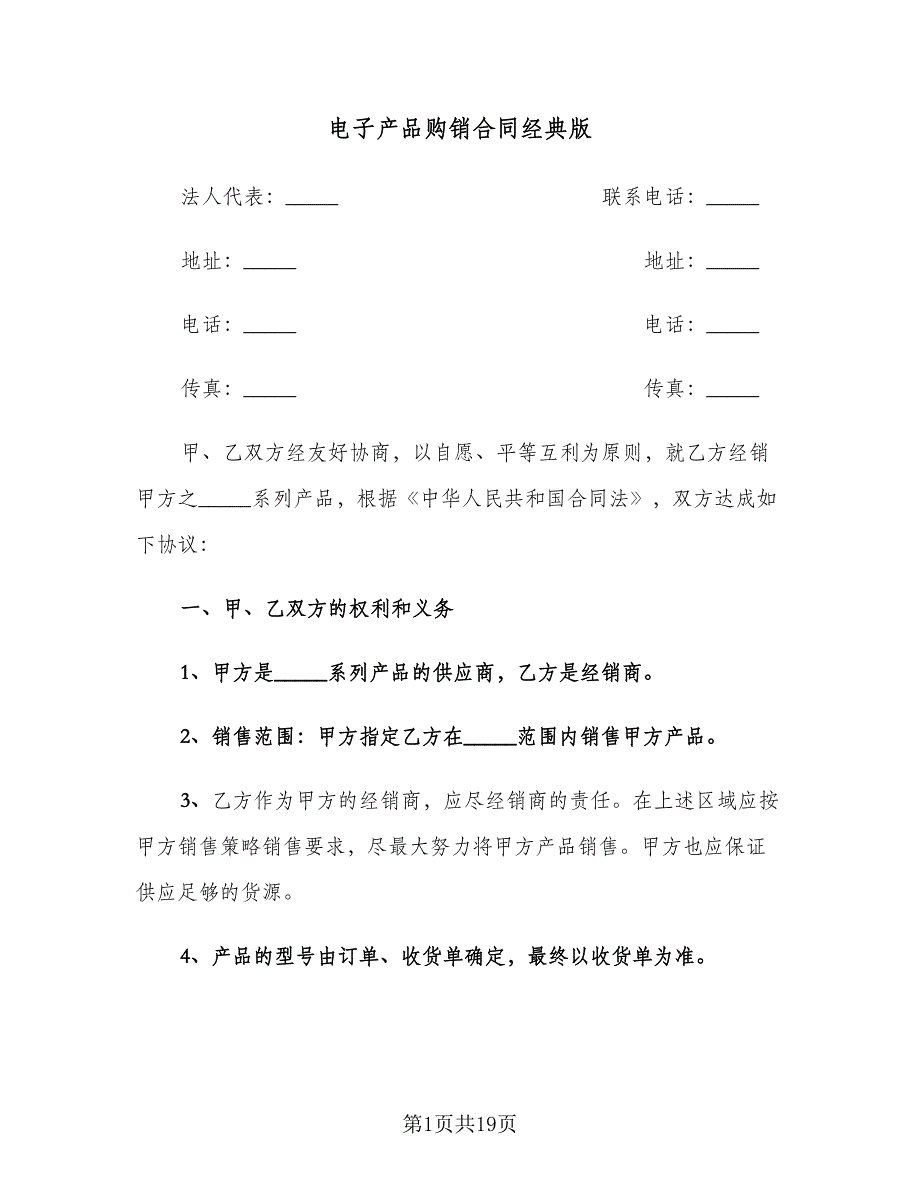 电子产品购销合同经典版
法人代表：_____ 联系电话：_____
地址：_____ 地址：_____
电话：_____ 电话：_____
传真：_____ 传真：_____
甲、乙双方经友好协商，以自愿、平等互利为原则，就乙方经销
甲方之_____系列产品，根据《中华人民共和国合同法》，双方达成如
下协议：
一、甲、乙双方的权利和义务
1、甲方是_____系列产品的供应商，乙方是经销商。
2、销售范围：甲方指定乙方在_____范围内销售甲方产品。
3、乙方作为甲方的经销商，应尽经销商的责任。在上述区域应按
甲方销售策略销售要求，尽最大努力将甲方产品销售。甲方也应保证
供应足够的货源。
4、产品的型号由订单、收货单确定，最终以收货单为准。
第1页共19页